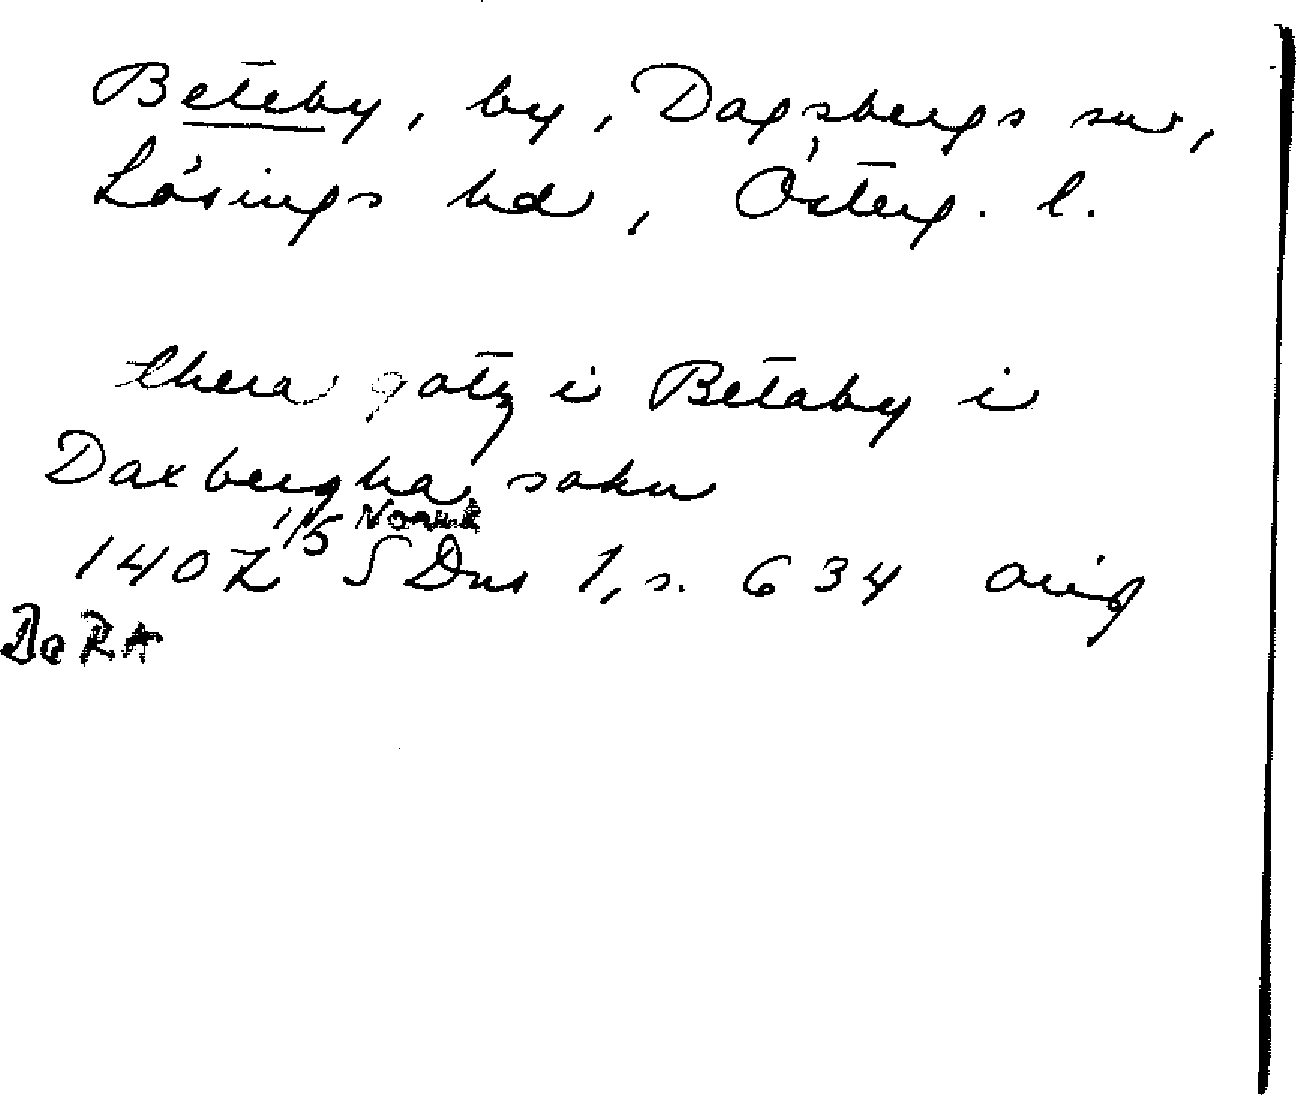 Beteby, by, Dagsbergs sn,
Lösings hd, Österg. l.
thera gotz i Betaby i
Daxbergha sokn
1402 1/5 SDns 1, s. 634 orig